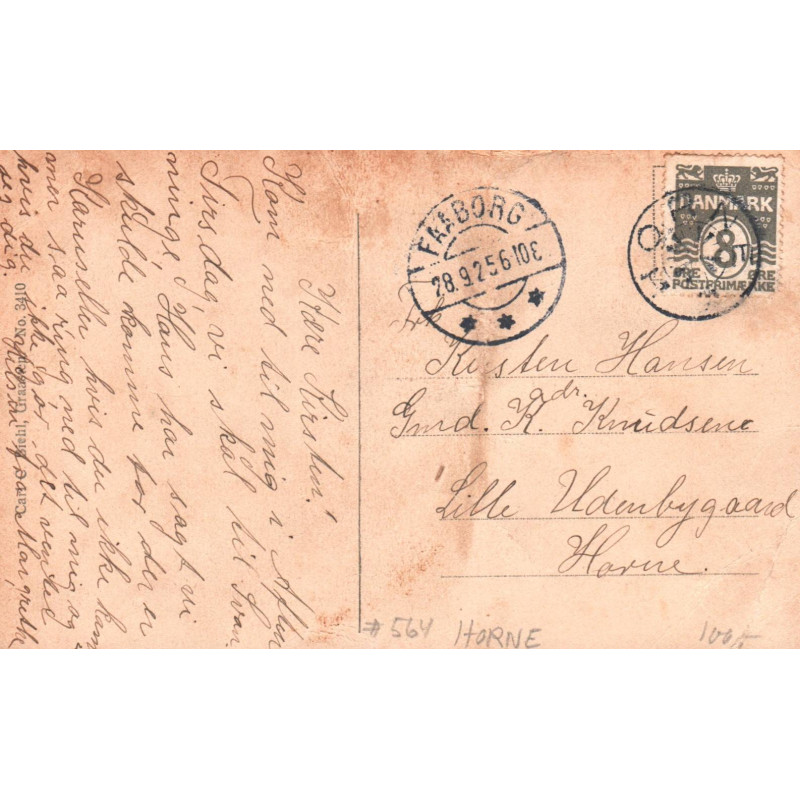 Kære Kirsten!
Kom ned til mig i Aften
Tirsdag, vi skal til Svan
ninge, Hans har sagt vi
skulde komme for der er
hvis du ikke kan
men saa ring ned til mig og
hvis du ikke gør det venter
jeg dig. Margrethe
Carl Biehl, Graasten. No. 3410
FAABORG
28.9.25 6-10E
DANMARK
8
ØRE ØRE
POSTFRIMÆRKE
Frk.
Kirsten Hansen
adr.
Gmd. K. Knudsen
Lille Udenbygaard
Horne.
# 564 HORNE
100,-